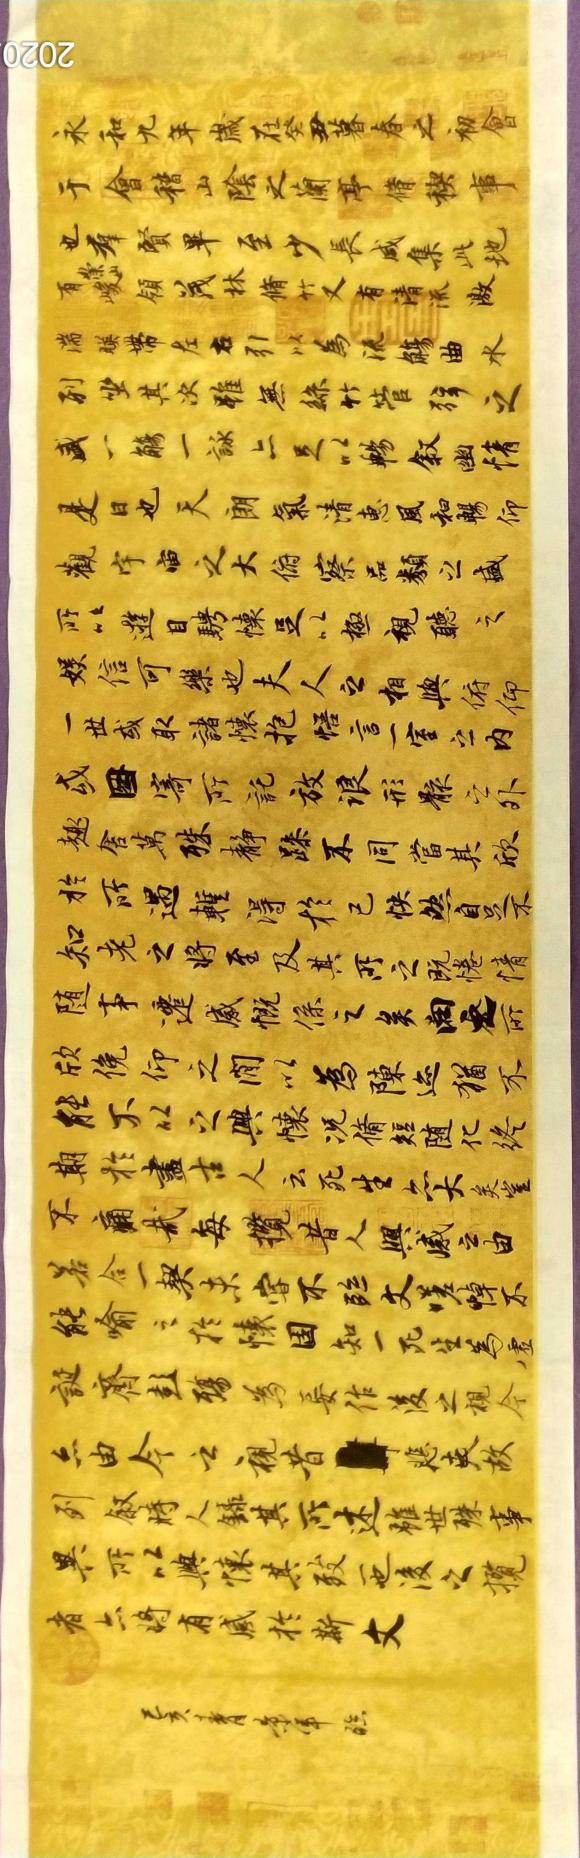 2020
永和九年歲在癸丑暮春之初會
于會稽山陰之蘭亭脩稧事
也羣賢畢至少長咸集此地
有崇山峻領茂林脩竹又有清流激
湍暎帶左右引以為流觴曲水
列坐其次雖無絲竹管弦之
盛一觴一詠亦足以暢敘幽情
是日也天朗氣清惠風和暢仰
觀宇宙之大俯察品類之盛
所以遊目騁懷足以極視聽之
娛信可樂也夫人之相與俯仰
一世或取諸懷抱悟言一室之內
或因寄所託放浪形骸之外
趣舍萬殊靜躁不同當其欣
於所遇蹔得於己怏然自足不
知老之將至及其所之既惓情
隨事遷感慨係之矣向之所
欣俛仰之間以為陳迹猶不
能不以之興懷況脩短隨化終
期於盡古人云死生亦大矣豈
不痛哉每攬昔人興感之由
若合一契未嘗不臨文嗟悼不
能喻之於懷固知一死生為虛
誕齊彭殤為妄作後之視今
亦由今之視昔悲夫故
列敘時人錄其所述雖世殊事
異所以興懷其致一也後之攬
者亦將有感於斯文
己亥臨